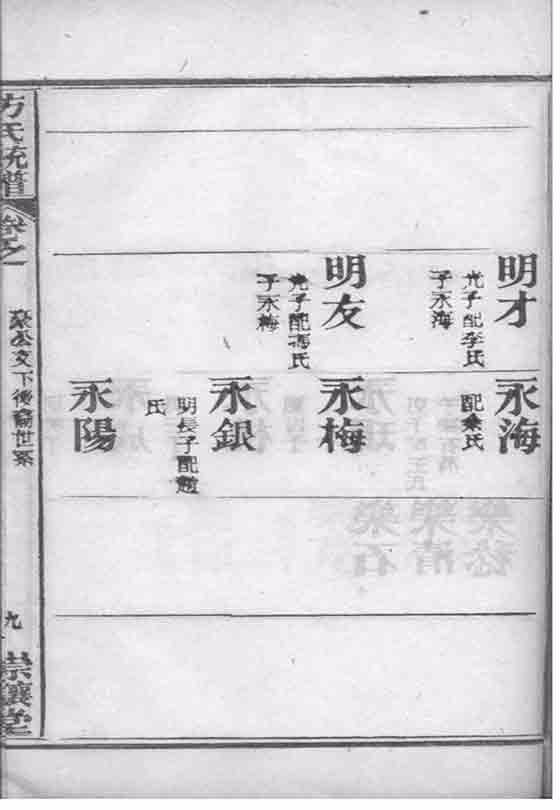 明才
光子配李氏
子永海
明友
光子配馮氏
子永梅
永海
配秦氏
永梅
永銀
明長子配趙
氏
永陽
方氏統普
卷之一
下後裔世系
九
堂